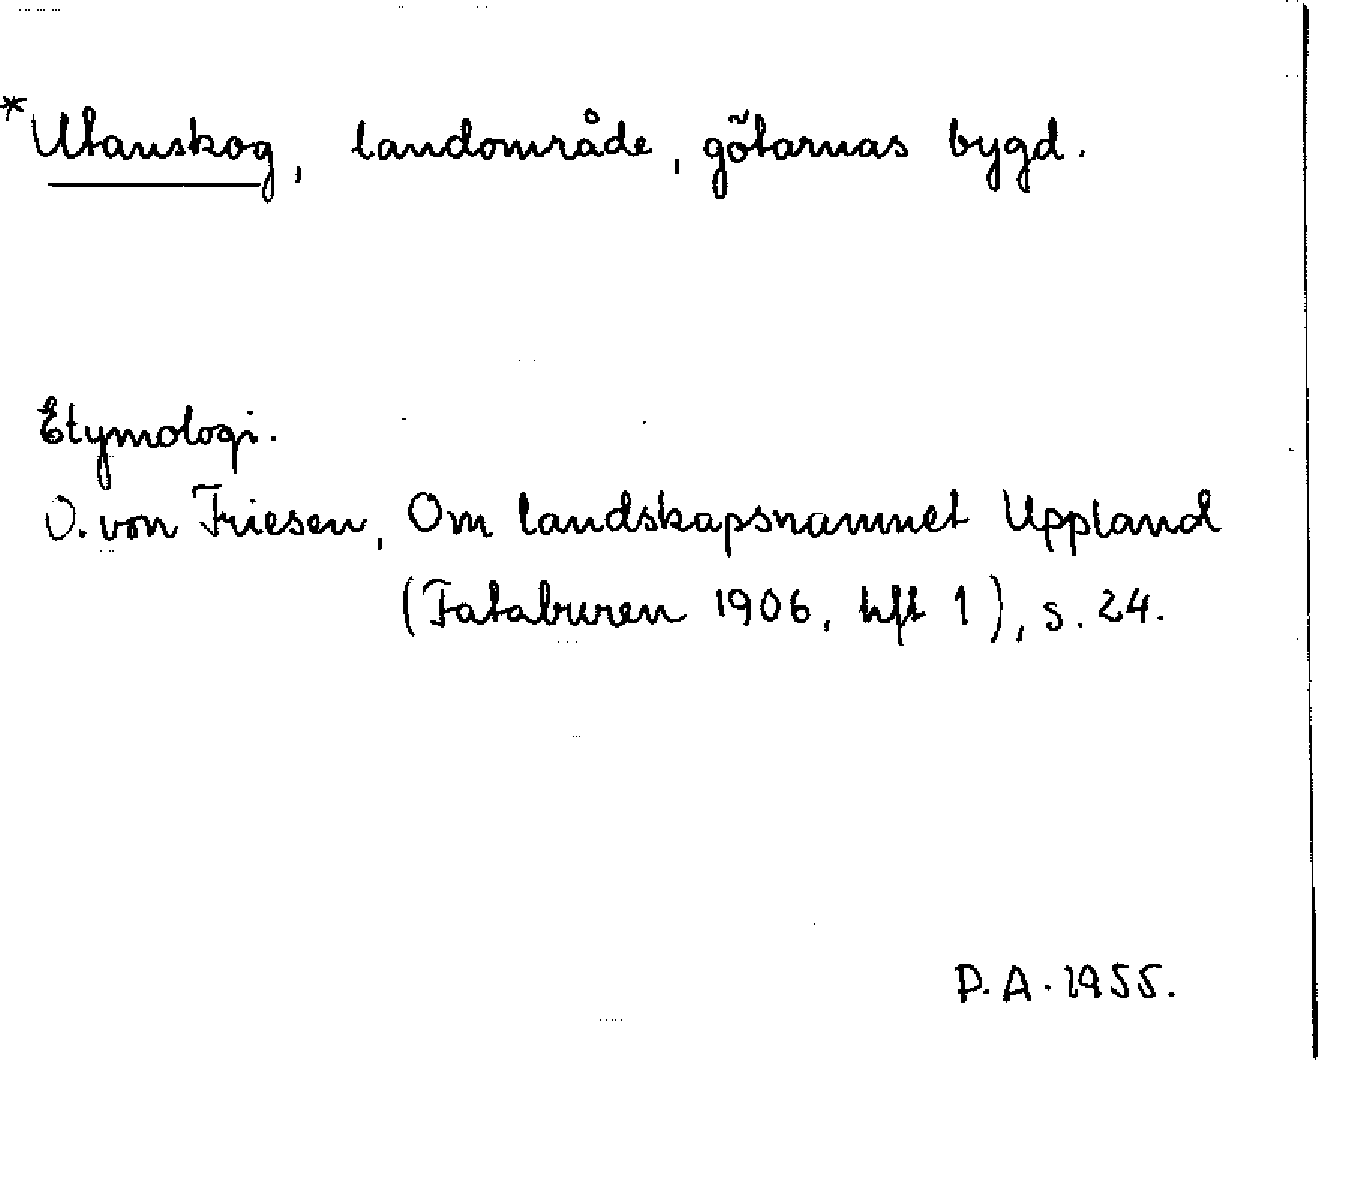 *Utanskog, landområde, götarnas bygd.
Etymologi.
O. von Friesen, Om landskapsnamnet Uppland
(Fataburen 1906, hft 1), s. 24.
P.A. 1955.